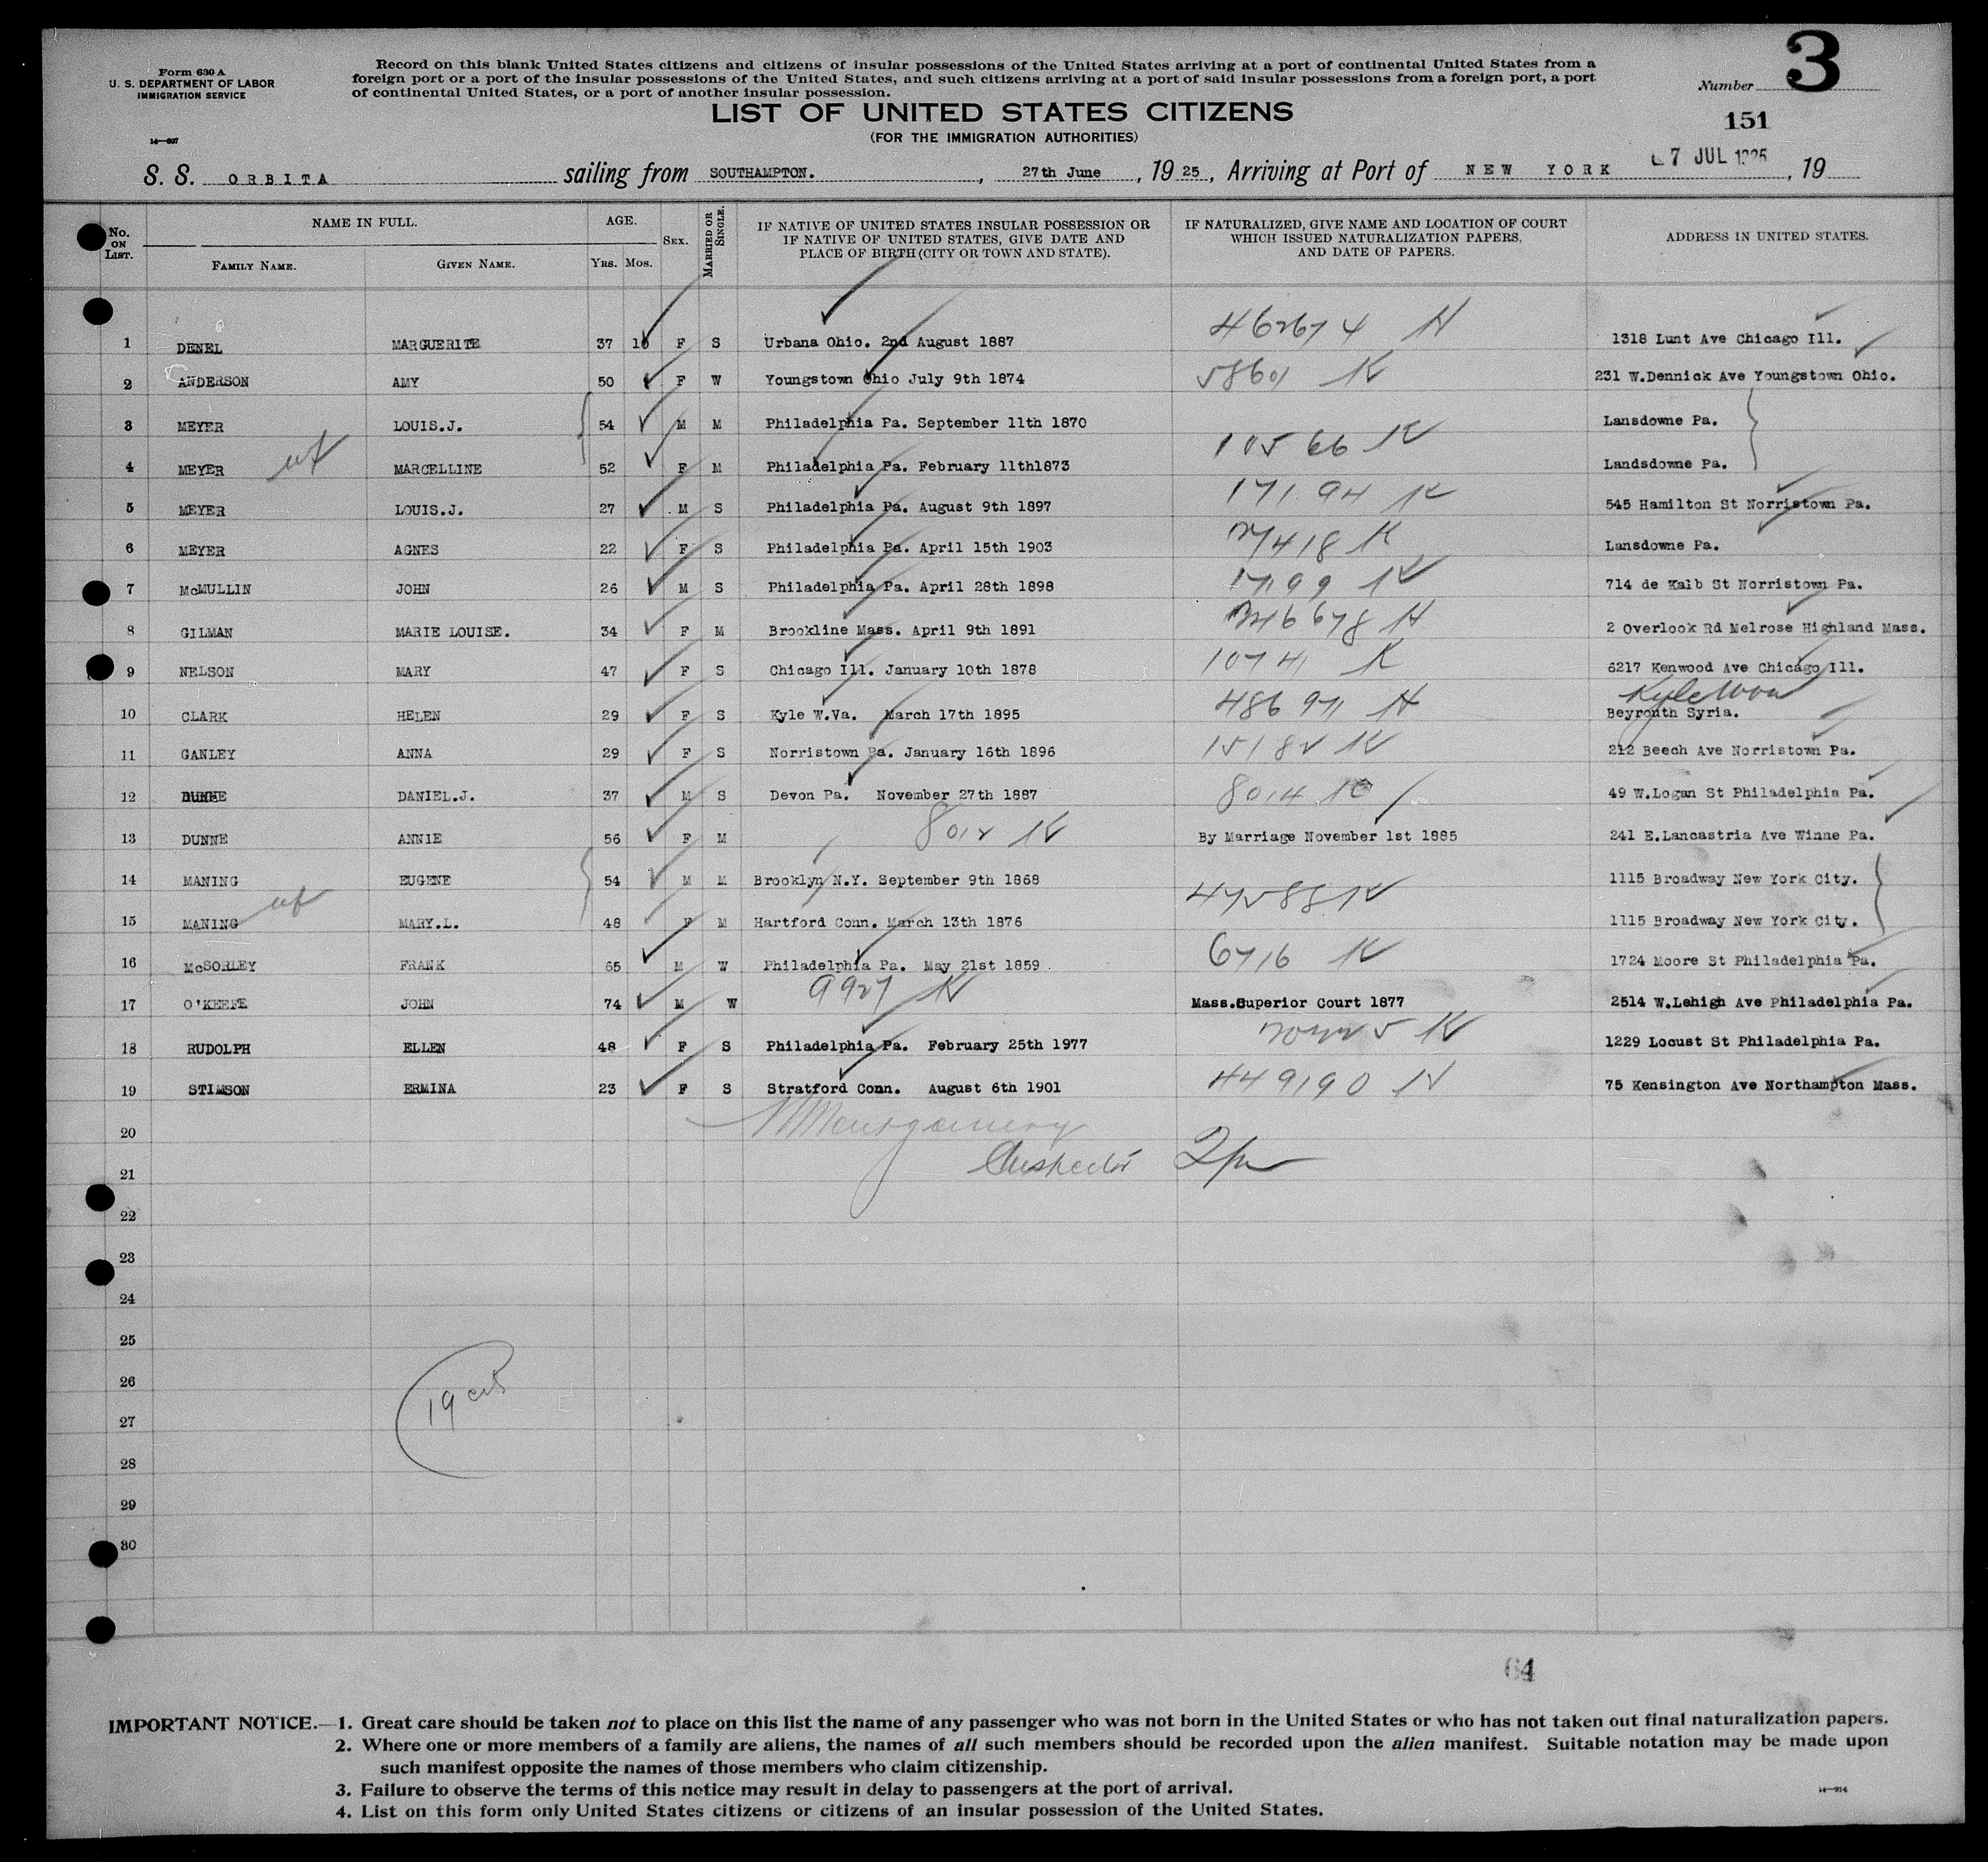 Form 630 A
U. S. DEPARTMENT OF LABOR
IMMIGRATION SERVICE
Record on this blank United States citizens and citizens of insular possessions of the United States arriving at a port of continental United States from a
foreign port or a port of the insular possessions of the United States, and such citizens arriving at a port of said insular possessions from a foreign port, a port
of continental United States, or a port of another insular possession.
Number 3
151
LIST OF UNITED STATES CITIZENS
(FOR THE IMMIGRATION AUTHORITIES)
14—607
S. S. ORBITA sailing from SOUTHAMPTON. , 27th June , 19 25 , Arriving at Port of NEW YORK 7 JUL 1925 , 19
No. ON LIST. NAME IN FULL. FAMILY NAME. GIVEN NAME. AGE. YRS. MOS. SEX. MARRIED OR SINGLE. IF NATIVE OF UNITED STATES INSULAR POSSESSION OR IF NATIVE OF UNITED STATES, GIVE DATE AND PLACE OF BIRTH (CITY OR TOWN AND STATE). IF NATURALIZED, GIVE NAME AND LOCATION OF COURT WHICH ISSUED NATURALIZATION PAPERS, AND DATE OF PAPERS. ADDRESS IN UNITED STATES.
1 DENEL MARGUERITE 37 10 F S Urbana Ohio. 2nd August 1887 462674 H 1318 Lunt Ave Chicago Ill.
2 ANDERSON AMY 50 F W Youngstown Ohio July 9th 1874 K 231 W.Dennick Ave Youngstown Ohio.
3 MEYER LOUIS.J. 54 M M Philadelphia Pa. September 11th 1870 Lansdowne Pa.
4 MEYER wf MARCELLINE 52 F M Philadelphia Pa. February 11th1873 10566 K Landsdowne Pa.
5 MEYER LOUIS.J. 27 M S Philadelphia Pa. August 9th 1897 17194 K 545 Hamilton St Norristown Pa.
6 MEYER AGNES 22 F S Philadelphia Pa. April 15th 1903 27418 K Lansdowne Pa.
7 McMULLIN JOHN 26 M S Philadelphia Pa. April 28th 1898 17199 K 714 de Kalb St Norristown Pa.
8 GILMAN MARIE LOUISE. 34 F M Brookline Mass. April 9th 1891 H 2 Overlook Rd Melrose Highland Mass.
9 NELSON MARY 47 F S Chicago Ill. January 10th 1878 10741 K 6217 Kenwood Ave Chicago Ill.
10 CLARK HELEN 29 F S Kyle W.Va. March 17th 1895 486971 H Kyle Beyrouth Syria.
11 GANLEY ANNA 29 F S Norristown Pa. January 16th 1896 15182 K 212 Beech Ave Norristown Pa.
12 DUNNE DANIEL.J. 37 M S Devon Pa. November 27th 1887 8014 K 49 W.Logan St Philadelphia Pa.
13 DUNNE ANNIE 56 F M 8012 K By Marriage November 1st 1885 241 E.Lancastria Ave Winne Pa.
14 MANING EUGENE 54 M M Brooklyn N.Y. September 9th 1868 1115 Broadway New York City.
15 MANING wf MARY.L. 48 F M Hartford Conn. March 13th 1876 47588 K 1115 Broadway New York City.
16 McSORLEY FRANK 65 M W Philadelphia Pa. May 21st 1859 6716 K 1724 Moore St Philadelphia Pa.
17 O'KEEFE JOHN 74 M W 9927 K Mass.Superior Court 1877 2514 W.Lehigh Ave Philadelphia Pa.
18 RUDOLPH ELLEN 48 F S Philadelphia Pa. February 25th 1977 K 1229 Locust St Philadelphia Pa.
19 STIMSON ERMINA 23 F S Stratford Conn. August 6th 1901 449190 H 75 Kensington Ave Northampton Mass.
20 Montgomery
21 Inspector
22
23
24
25
26
27 19
28
29
30
64
IMPORTANT NOTICE.—1. Great care should be taken not to place on this list the name of any passenger who was not born in the United States or who has not taken out final naturalization papers.
2. Where one or more members of a family are aliens, the names of all such members should be recorded upon the alien manifest. Suitable notation may be made upon
such manifest opposite the names of those members who claim citizenship.
3. Failure to observe the terms of this notice may result in delay to passengers at the port of arrival.
4. List on this form only United States citizens or citizens of an insular possession of the United States.